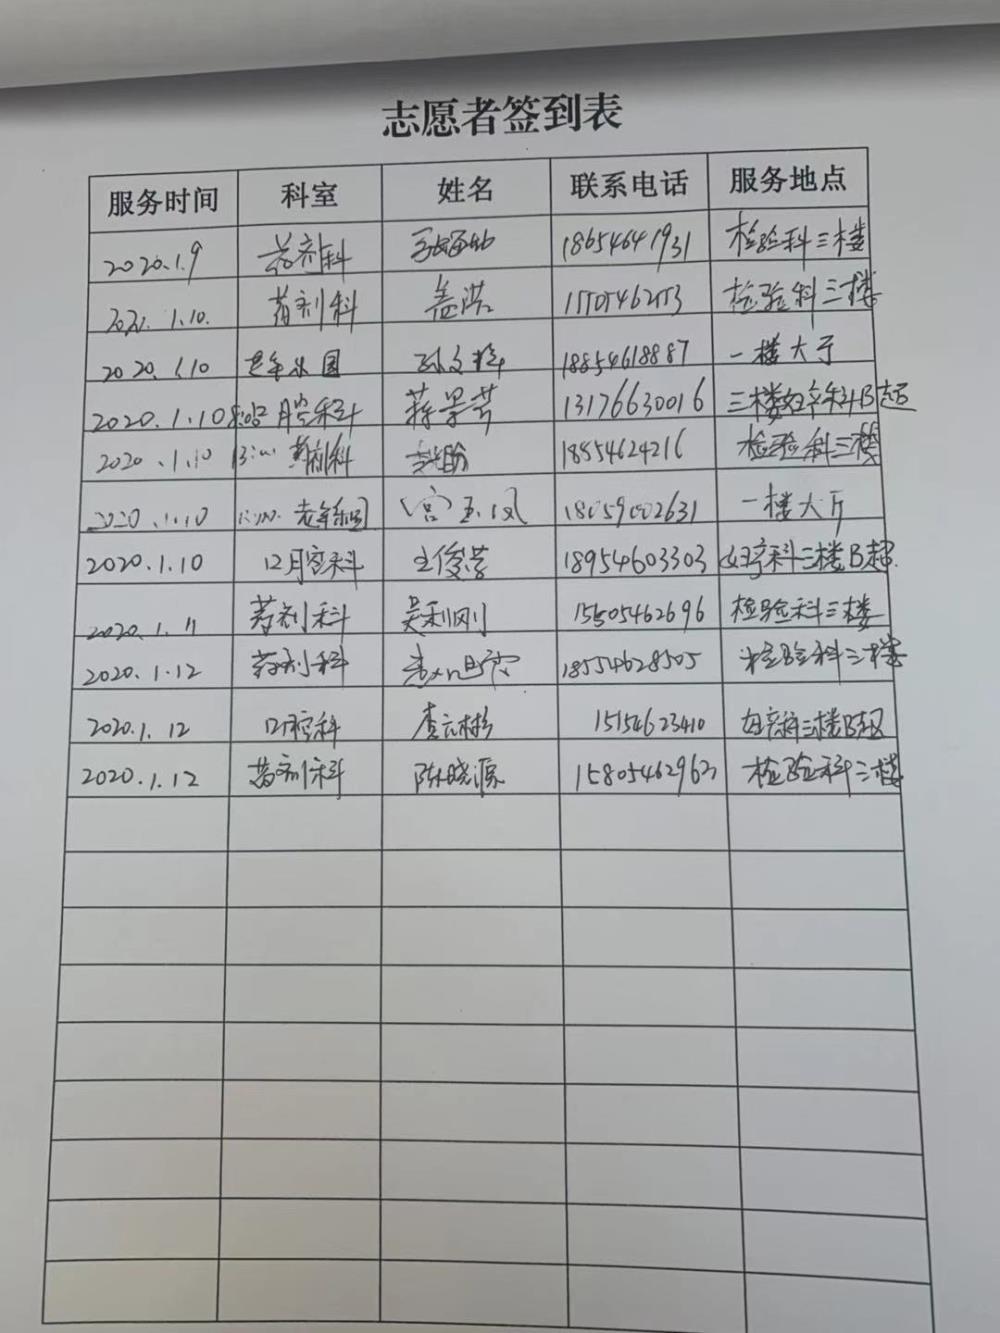 志愿者签到表
服务时间 科室 姓名 联系电话 服务地点
2020.1.9 药剂科 18654641931 检验科三楼
1.10. 药剂科 盖洪 检验科三楼
2020.1.10 18854618887 一楼大厅
2020.1.10 腔科 蒋景芳 13176630016 三楼妇产科B超
2020.1.10 药剂科 18854624216 检验科三楼
2020.1.10 宫玉凤 18059002631 一楼大厅
2020.1.10 口腔科 王俊芳 18954603303 妇产科三楼B超
2020.1.11 药剂科 吴利刚 15505462696 检验科三楼
2020.1.12 药剂科 18554628505 检验科三楼
2020.1.12 口腔科 李云彬 15154623410 妇产科三楼B超
2020.1.12 药剂科 陈晓源 检验科三楼